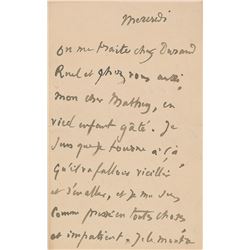 Mercredi
on me traite chez Durand
Ruel et chez vous aussi
mon cher Mathey, en
vieil enfant gâté. Je
sens que je tourne à çà
Qu'il va falloir vieillir
et et je me
comme pression en toutes choses
et impatient. Je le